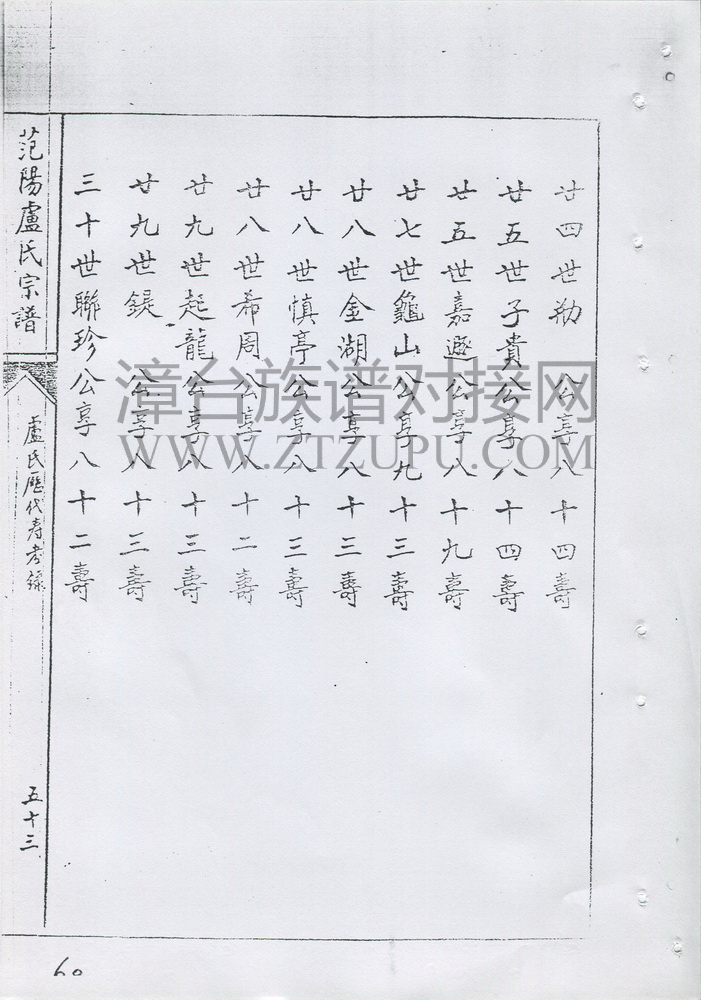 廿四世勑 公享八十四壽
廿五世子貴公享八十四壽
廿五世嘉遯公享八十九壽
廿七世龜山公享九十三壽
廿八世金湖公享八十三壽
廿八世慎亭公享八十三壽
廿八世希周公享八十二壽
廿九世起龍公享八十三壽
廿九世鍰 公享八十三壽
三十世聯珍公享八十二壽
范陽盧氏宗譜
盧氏歷代寿考錄
五十三
60
漳台族谱对接网
WWW.ZTZUPU.COM